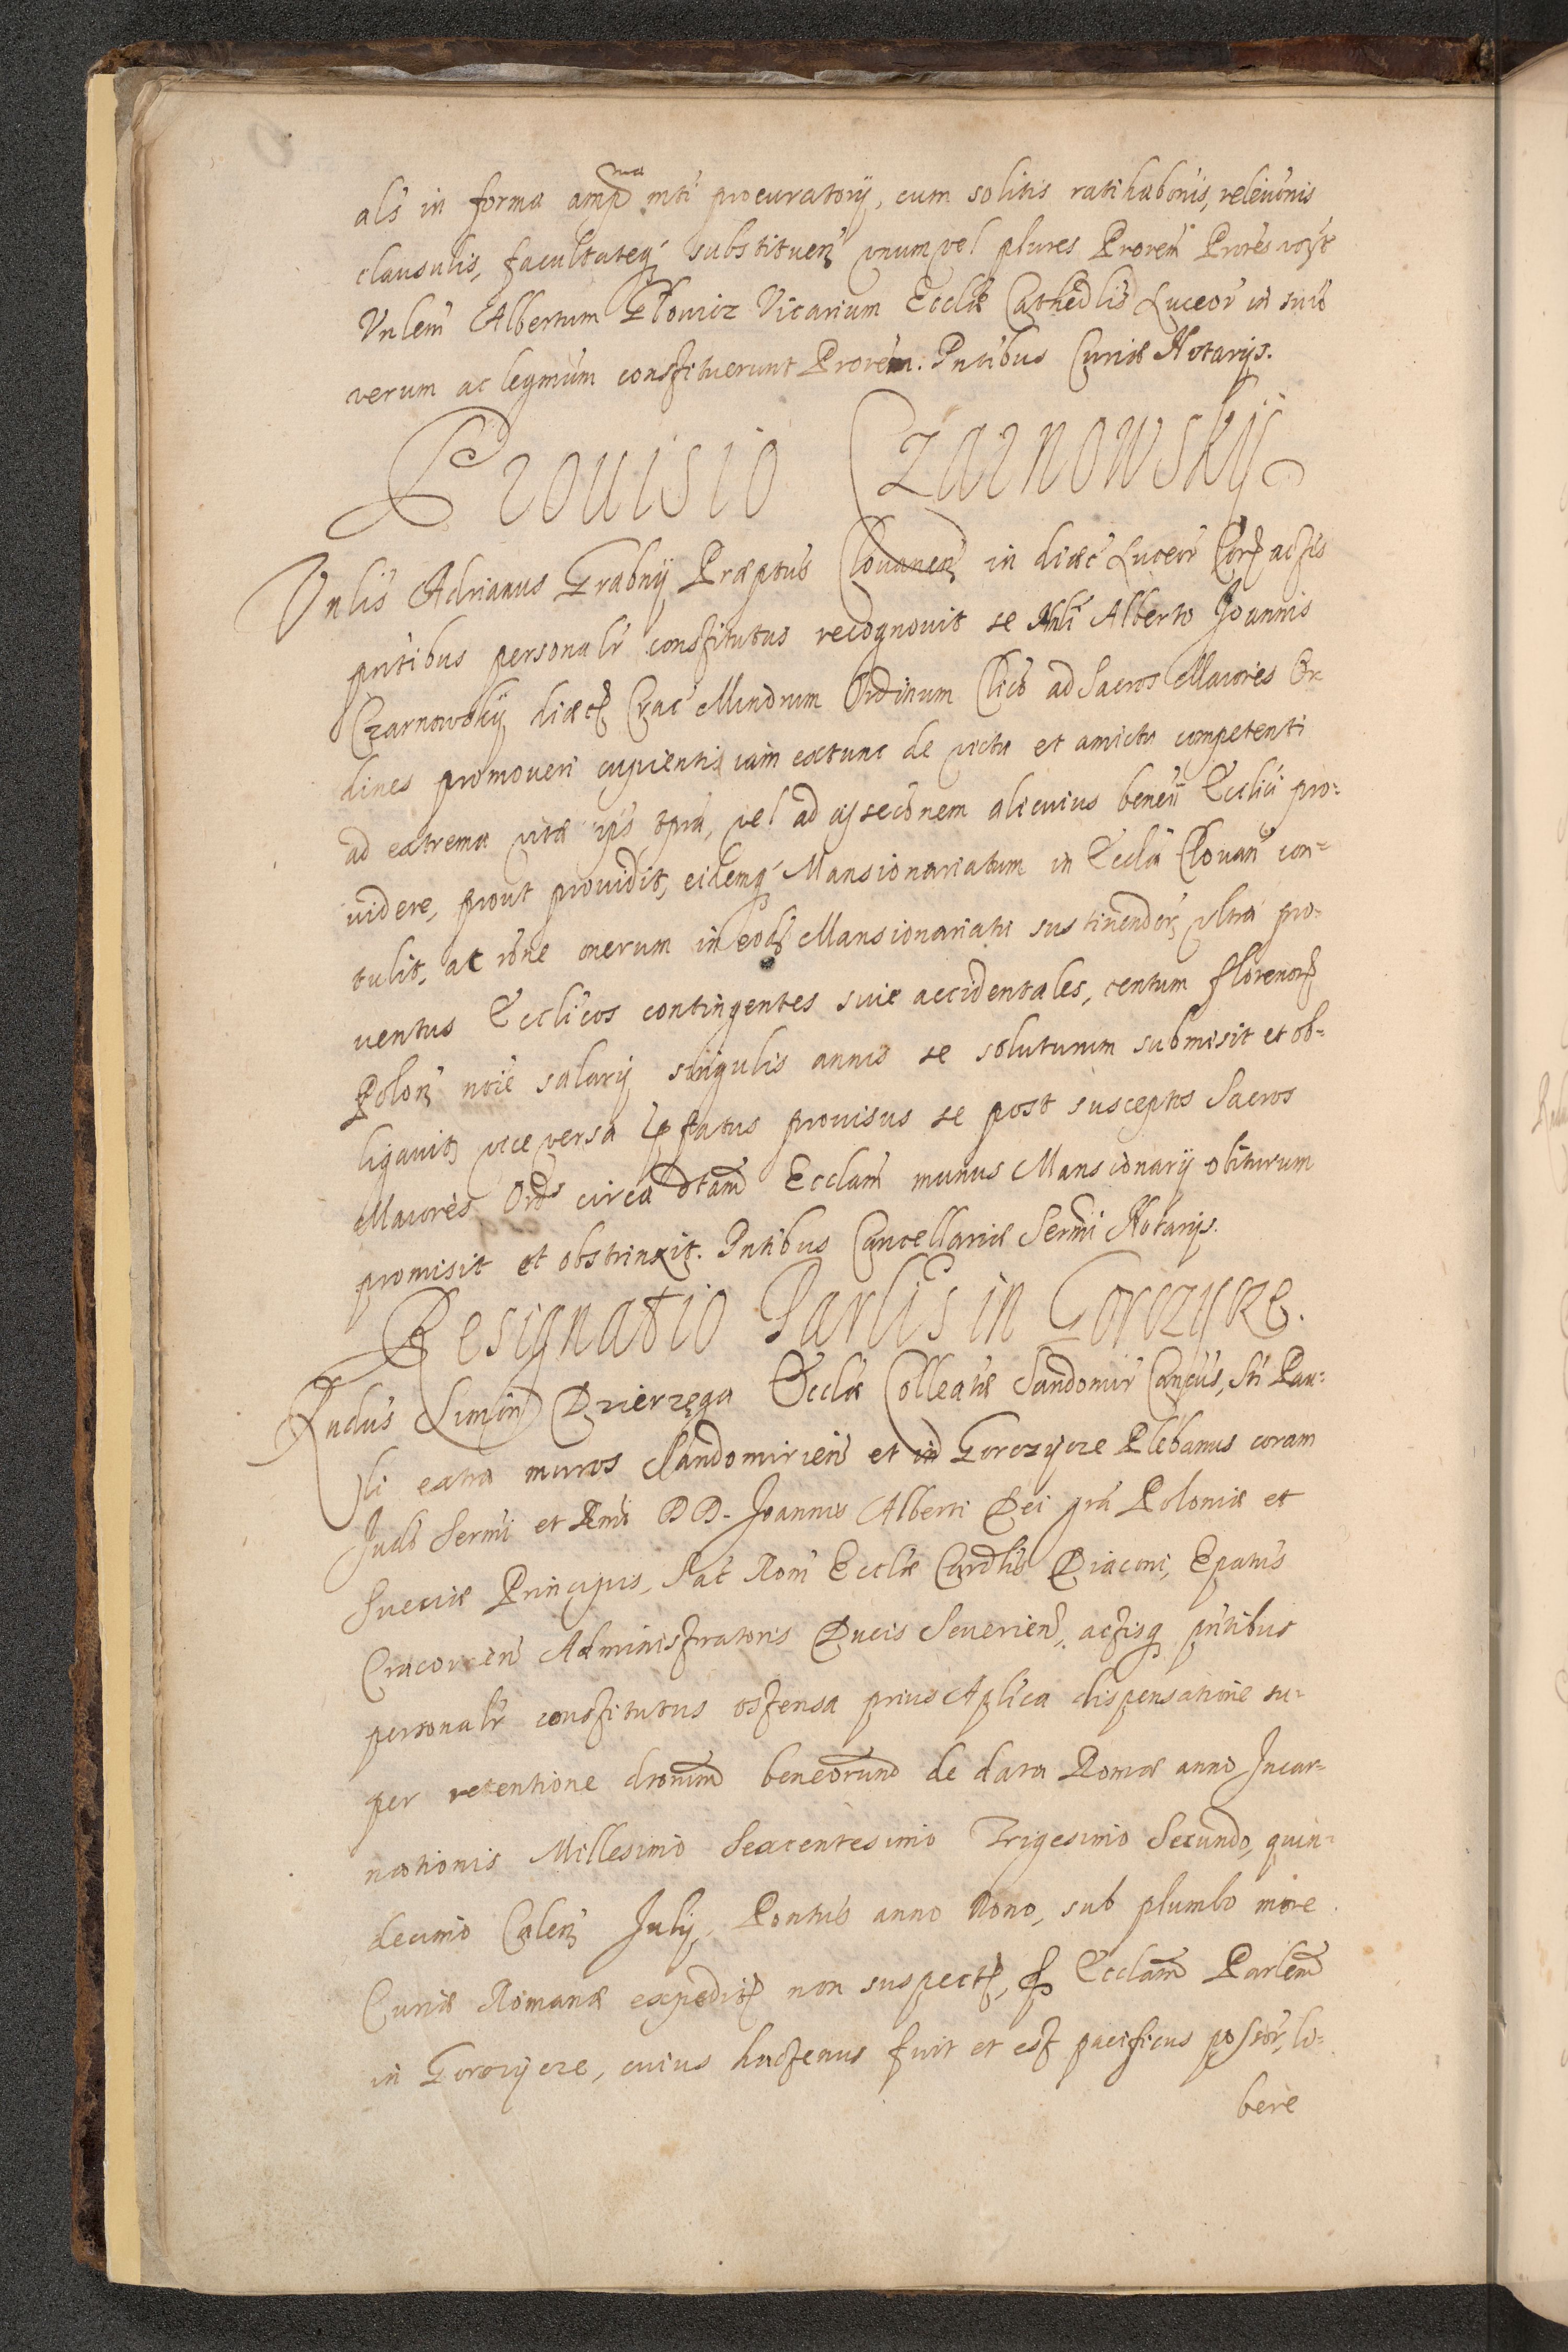 als in forma amp^ma mti procuratorij, cum solitis ratihabonis, releuonis
clausulis, facultateq substituen vnum vel plures Prorem Prores
Vnlem Albertum Vicarium Eccliæ Cathedlis Luceor in suu
verum ac legmum constituerunt Prorem. Pntibus Curiæ Notarijs.
Prouisio Czarnowskij
Vnlis Adrianus Grabnij Præptus Clouanen in diæc Luceor Cor actis
pntibus personalr constitutus recognouit se Alberto Joannis
Czarnowskij diæc Crac Minorum Ordinum Clico ad Sacros Maiores Or
dines promoueri cupientis iam extunc de victu et amictu competenti
ad extrema vitæ ips tpra, vel ad assecõnem alicuius beneii Ecclici pro=
uidere, prout prouidit, eidemq Mansionariatum in Eccla Clouan con=
tulit, ac rõne onerum in eod Mansionariatu sustinendor vltra pro=
uentus Ecclicos contingentes siue accidentales, centum florenor
Polon noie salarij singulis annis se soluturum submisit et ob=
ligauit, vice versa fatus prouisus se post susceptos Sacros
Maiores Ords circa dtam Ecclam munus Mansionarij obiturum
promisit et obstrinxit. Pntibus Cancellariæ Sermi Notarijs.
Resignatio Parlis in Gorczijcze.
Rndus Simon Dzierzęga Eccliæ Colleatæ Sandomir Cancus, Sti Pau=
li extra muros Sandomirien et in Gorczijcze Plebanus coram
Judi Sermi et Rmi D D. Joannis Alberti Dei gra Poloniæ et
Sueciæ Principis, Sac Rom Eccliæ Cardlis Diaconi, Epatus
Cracouien Administratoris Ducis Seuerien, actisq pntibus
personalr constitutus ostensa prius Aplica dispensatione su=
per retentione drorum beneorum de data Romæ anno Incar=
nationis Millesimo Sexcentesimo Trigesimo Secundo, quin=
decimo Calen Julij, Pontus anno Nono, sub plumbo more
Curiæ Romanæ expedit non suspect, Ecclam Parlem
in Gorczijcze, cuius hactenus fuit et est pacificus possor, li=
bere